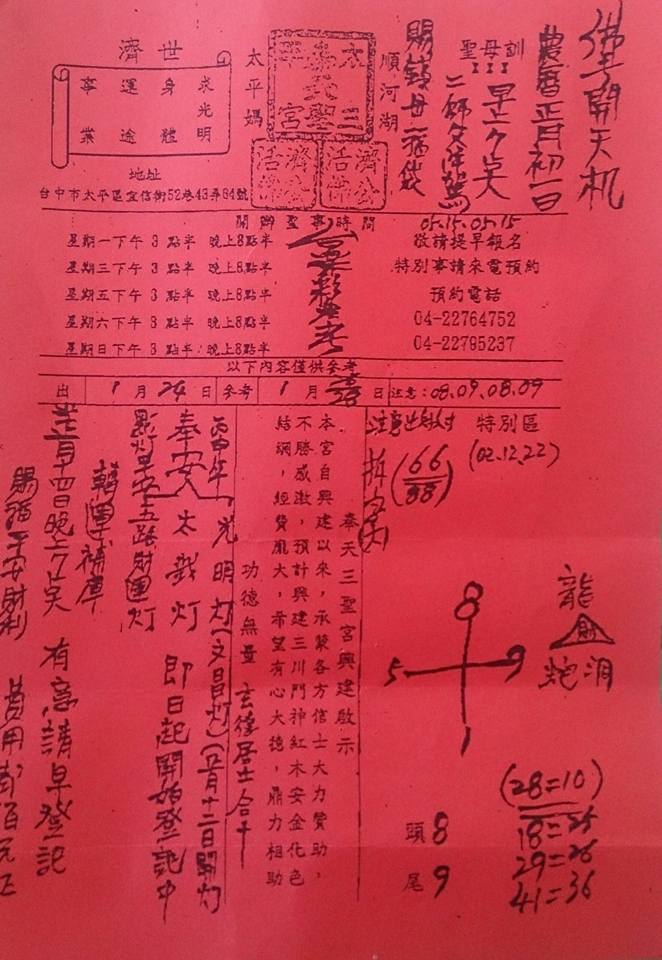 佛手開天机
農曆正月初一日
聖母訓
早上
順河湖
太平媽
奉天三聖宮
濟公活佛
濟公活佛
濟世
求光明
身體
運途
事業
地址
台中市太平區宜信街52巷43弄64號
開辦聖事時間
星期一下午 3 點半 晚上8點半
星期三下午 3 點半 晚上8點半
星期五下午 3 點半 晚上8點半
星期六下午 3 點半 晚上8點半
星期日下午 3 點半 晚上8點半
05.15.05.15
敬請提早報名
特別事請來電預約
預約電話
04-22764752
04-22795237
以下內容僅供參考
出 1 月 24 日 參考 1 月 日 注意：08.09.08.09
特別區
(02.12.22)
(66
88)
8
5 9
1
龍
財
炮洞
(28=10)
18=25
29=26
41=36
頭 8
尾 9
奉天三聖宮興建啟示
本宮自興建以來，承蒙各方信士大力贊助，
不勝感激，預計興建三川門神紅木安金化色
結網，經費龐大，希望有心大德，鼎力相助
功德無量 玄德居士合十
丙申年 光明灯(文昌灯)(正月十二日開灯
奉安 太歲灯 即日起開始登記中
點灯平安五路財運灯
補運補庫
有意請早登記
賜福平安財利 費用貳佰元正